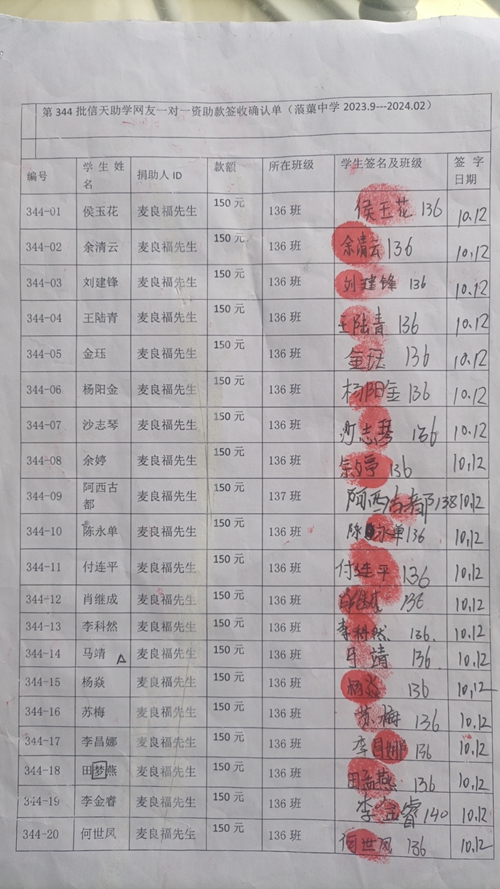 第 344 批信天助学网友一对一资助款签收确认单（蕅蕖中学 2023.9---2024.02）
编号 学生姓名 捐助人 ID 款额 所在班级 学生签名及班级 签字日期
344-01 侯玉花 麦良福先生 150 元 136 班 侯玉花 136 10.12
344-02 余清云 麦良福先生 150 元 136 班 余清云 136 10.12
344-03 刘建锋 麦良福先生 150 元 136 班 刘建锋 136 10.12
344-04 王陆青 麦良福先生 150 元 136 班 王陆青 136 10.12
344-05 金珏 麦良福先生 150 元 136 班 金珏 136 10.12
344-06 杨阳金 麦良福先生 150 元 136 班 杨阳金 136 10.12
344-07 沙志琴 麦良福先生 150 元 136 班 沙志琴 136 10.12
344-08 余婷 麦良福先生 150 元 136 班 余婷 136 10.12
344-09 阿西古都 麦良福先生 150 元 137 班 阿西古都 138 10.12
344-10 陈永单 麦良福先生 150 元 136 班 陈永单 136 10.12
344-11 付连平 麦良福先生 150 元 136 班 付连平 136 10.12
344-12 肖继成 麦良福先生 150 元 136 班 136 10.12
344-13 李科然 麦良福先生 150 元 136 班 李科然 136 10.12
344-14 马靖 麦良福先生 150 元 136 班 马靖 136 10.12
344-15 杨焱 麦良福先生 150 元 136 班 杨焱 136 10.12
344-16 苏梅 麦良福先生 150 元 136 班 苏梅 136 10.12
344-17 李昌娜 麦良福先生 150 元 136 班 李昌娜 136 10.12
344-18 田梦燕 麦良福先生 150 元 136 班 田孟燕 136 10.12
344-19 李金睿 麦良福先生 150 元 136 班 李金睿 140 10.12
344-20 何世凤 麦良福先生 150 元 136 班 何世凤 136 10.12